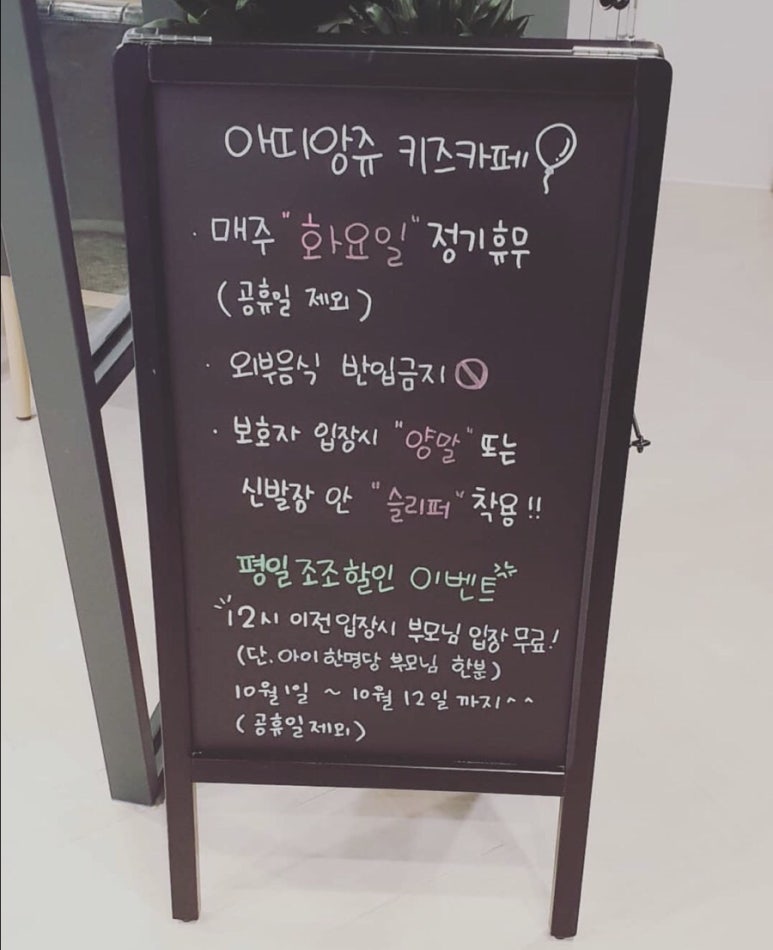 아띠앙쥬 키즈카페
· 매주 "화요일" 정기휴무
(공휴일 제외)
· 외부음식 반입금지
· 보호자 입장시 "양말" 또는
신발장 안 "슬리퍼" 착용!!
평일 조조할인 이벤트
12시 이전 입장시 부모님 입장 무료!
(단, 아이 한명당 부모님 한분)
10월 1일 ~ 10월 12일 까지^^
(공휴일 제외)